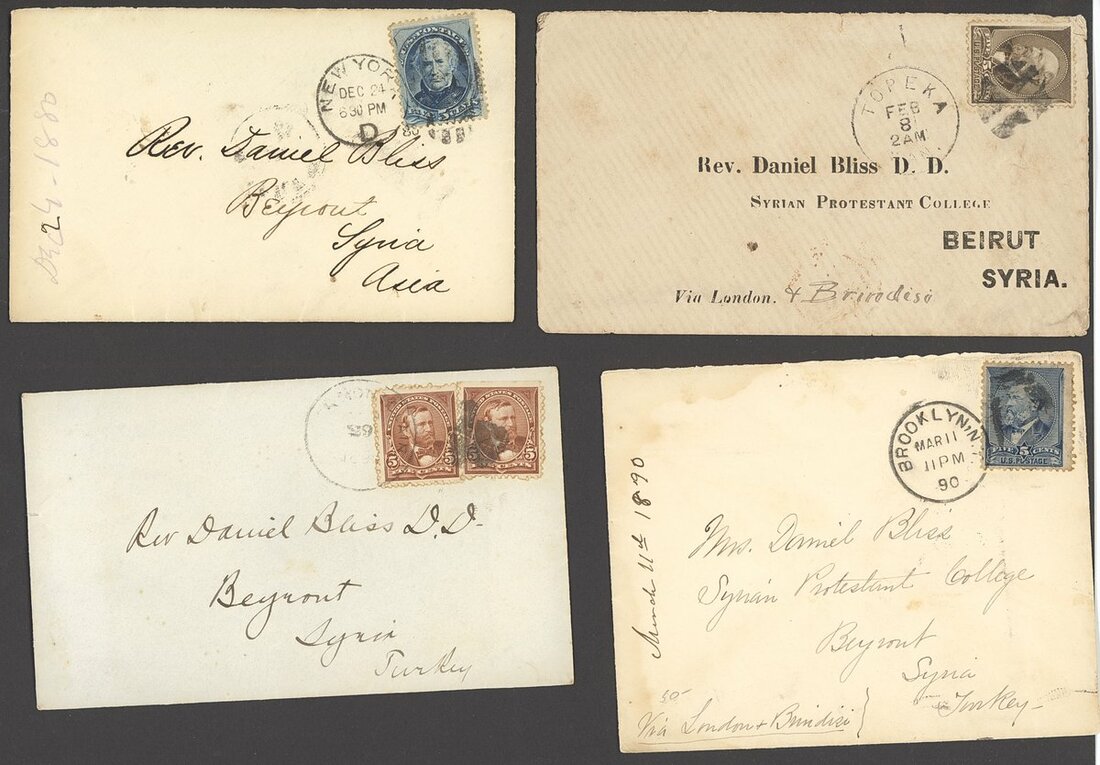 NEW YORK
DEC 24
630 PM
D
80
U.S. POSTAGE
Dec 24-1880
Rev. Daniel Bliss
Beyrout
Syria
Asia
TOPEKA
FEB
8
2AM
KAN.
Rev. Daniel Bliss D. D.
SYRIAN PROTESTANT COLLEGE
BEIRUT
SYRIA.
Via London. & Brindisi
UNITED STATES POSTAGE
5 5
FIVE CENTS
Rev Daniel Bliss D.D-
Beyrout
Syria
Turkey
BROOKLYN, N.
MAR 11
11 PM
90
FIVE 5 CENTS
U.S. POSTAGE
March 11th 1890
Mrs. Daniel Bliss
Syrian Protestant College
Beyrout
Syria
Turkey-
Via London & Brindisi